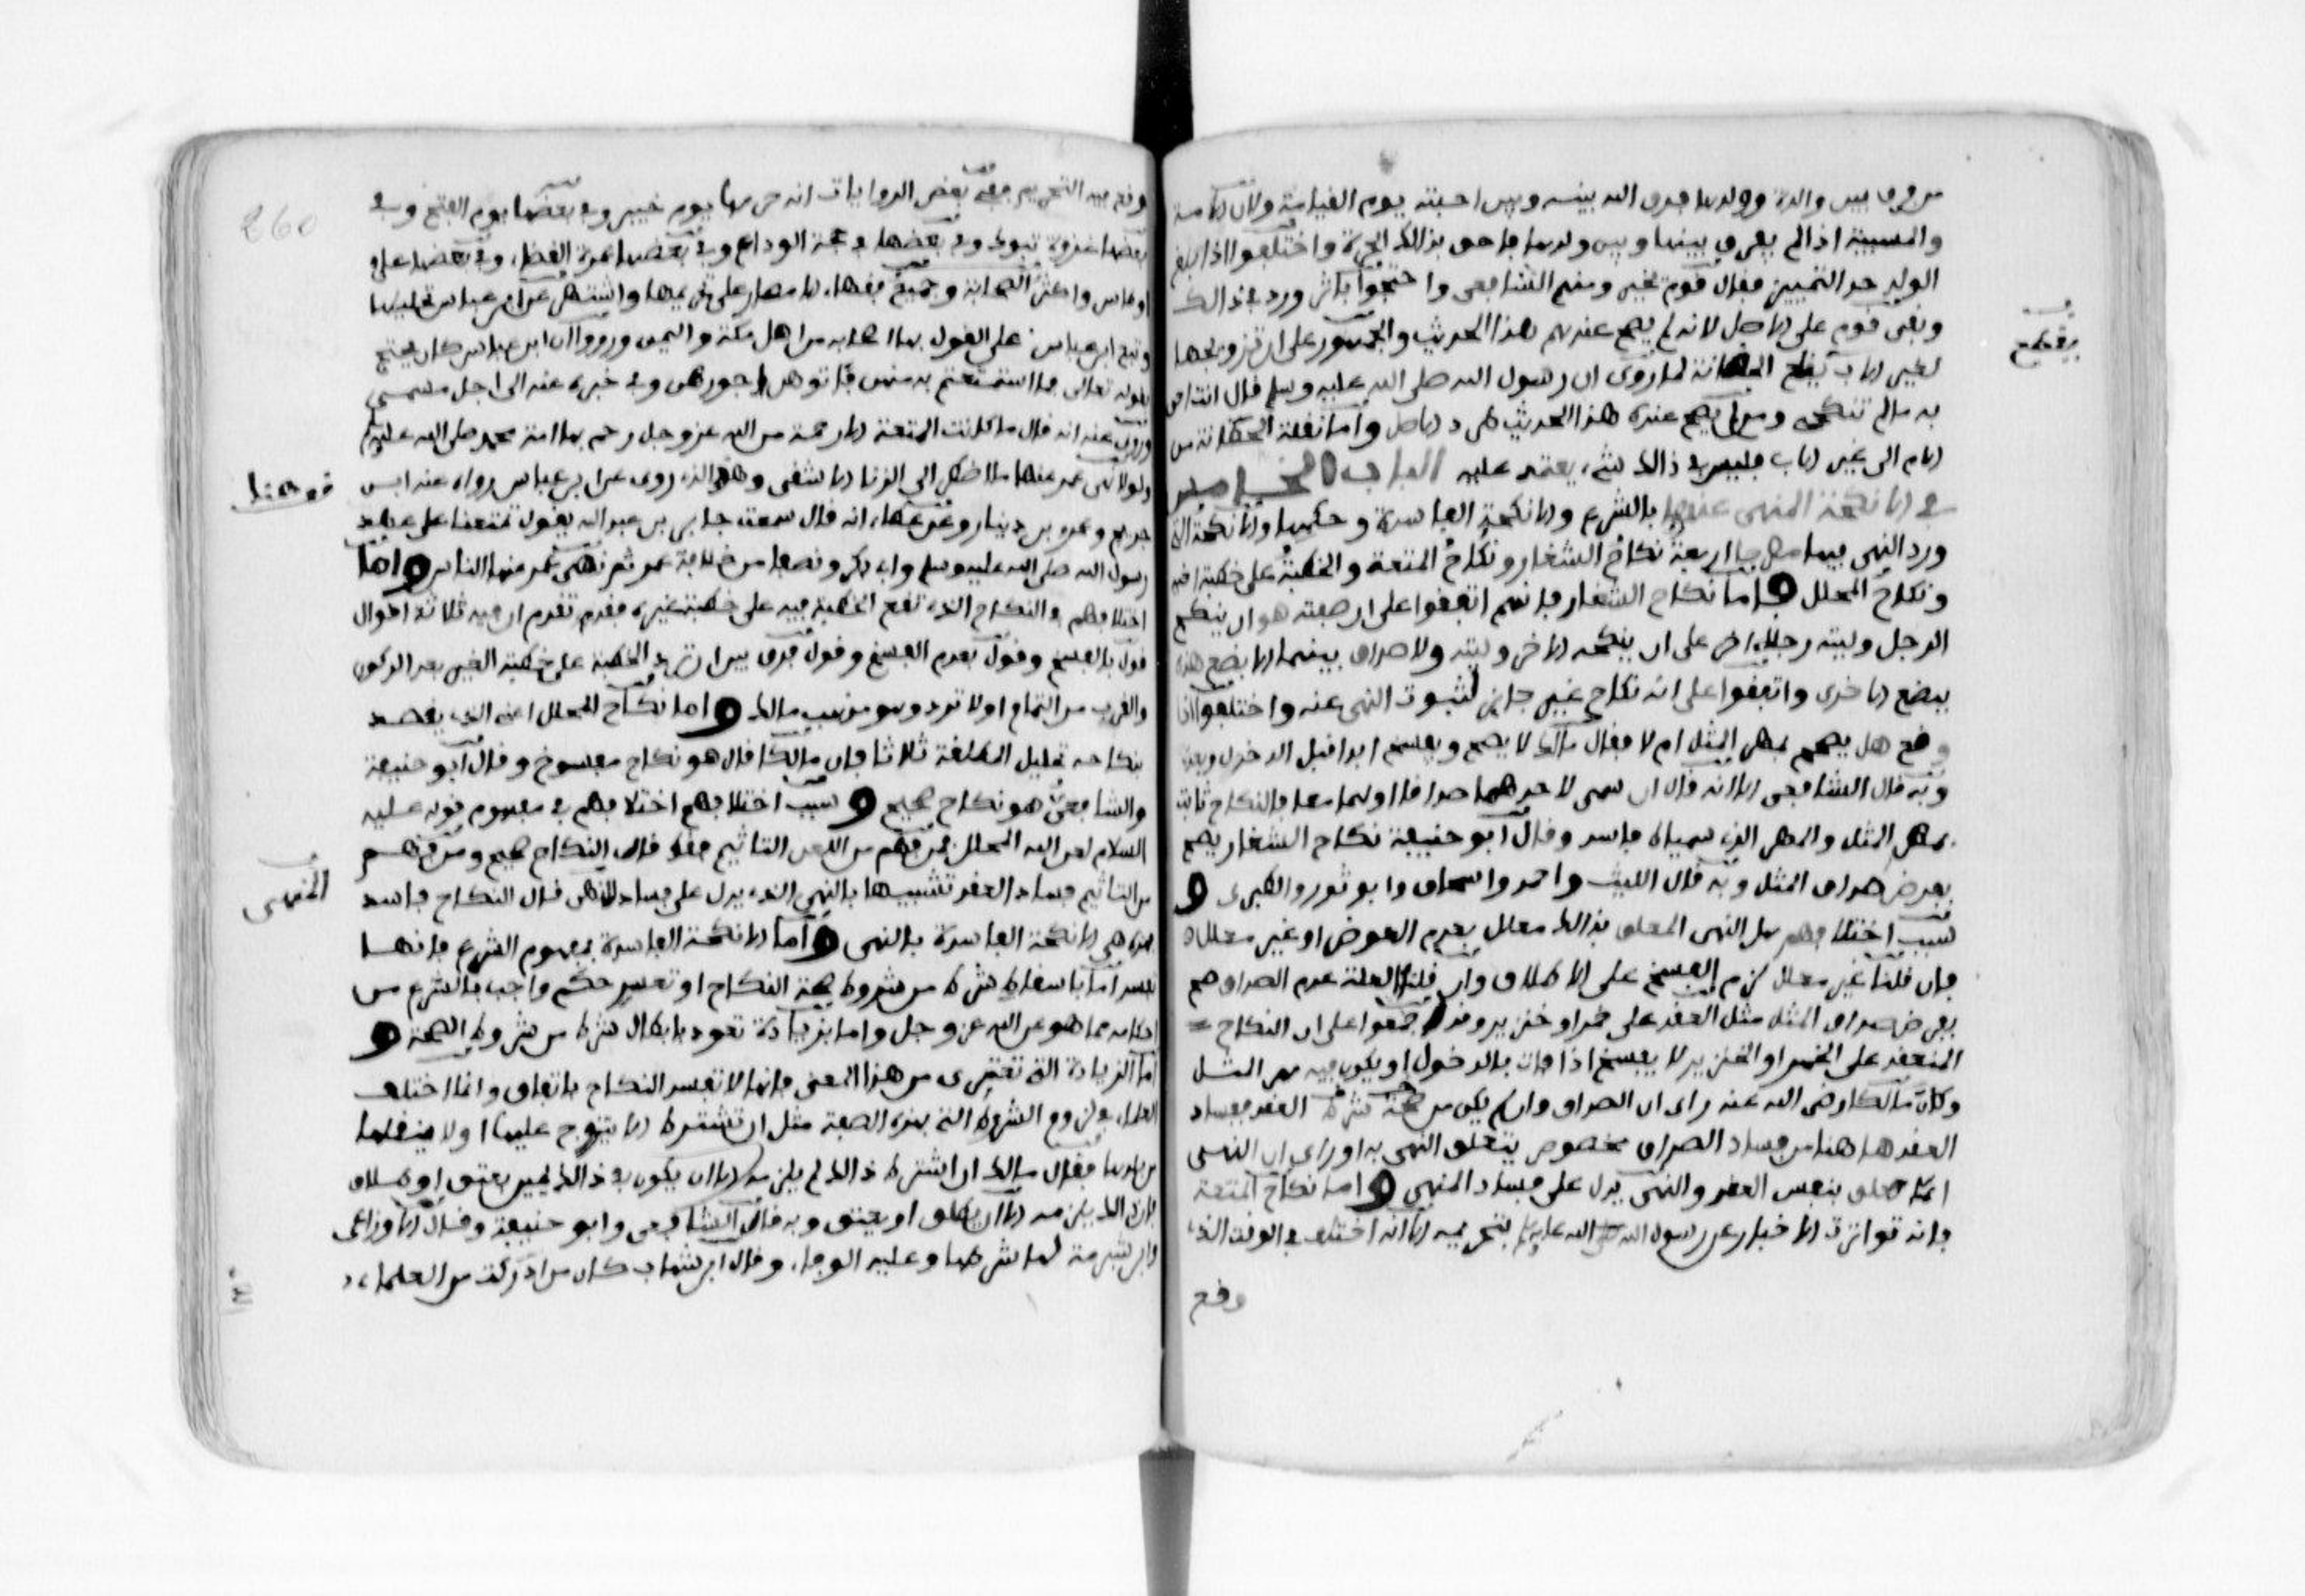 من فرق بين والدة وولدها فرق الله بينه وبين احبته يوم القيامة ولان الامة
والمسبية اذا لم يفرق بينها وبين ولدها فاحرى بذالك الحرة واختلفوا اذا بلغ
الولد حد التمييز فقال قوم تخير ومنهم الشافعي واحتجوا باثر ورد في ذالك
وبقى قوم على الاصل لانه لم يصح عندهم هذا الحديث والجمهور على ان تزويجها
لغير الاب يقطع الحضانة لما روي ان رسول الله صلى الله عليه وسلم قال انت احق
به ما لم تنكحي ومن لم يصح عنده هذا الحديث طرد الاصل واما نقل الحضانة من
الام الى غير الاب فليس في ذالك شيء يعتمد عليه الباب الخامس
في الانكحة المنهي عنها بالشرع والانكحة الفاسدة وحكمها والانكحة التي
ورد النهي فيها مصرحا اربعة نكاح الشغار ونكاح المتعة والخطبة على خطبة اخيه
ونكاح المحلل فاما نكاح الشغار فانهم اتفقوا على ان صفته هو ان ينكح
الرجل وليته رجلا اخر على ان ينكحه الاخر وليته ولا صداق بينهما الا بضع هذه
ببضع الاخرى واتفقوا على انه نكاح غير جايز لثبوت النهي عنه واختلفوا اذا
وقع هل يصحح بمهر المثل ام لا فقال مالك لا يصح ويفسخ ابدا قبل الدخول وبعده
وبه قال الشافعي الا انه قال ان سمى لاحدهما صداقا اولهما معا فالنكاح ثابت
بمهر المثل والمهر الذي سمياه فاسد وقال ابو حنيفة نكاح الشغار يصح
بفرض صداق المثل وبه قال الليث واحمد واسحاق وابو ثور والطبري و
سبب اختلافهم هل النهي المعلق بذالك معلل بعدم العوض او غير معلل
فان قلنا غير معلل لزم الفسخ على الاطلاق وان قلنا العلة عدم الصداق صح
بفرض صداق المثل مثل العقد على خمر او خنزير وقد اجمعوا على ان النكاح
المنعقد على الخمر او الخنزير لا يفسخ اذا فات بالدخول او يكون فيه مهر المثل
وكان مالكا رضي الله عنه راى ان الصداق وان لم يكن من صحة شرط العقد ففساد
العقد هاهنا من فساد الصداق مخصوص يتعلق النهي به او راى ان النهي
انما يتعلق بنفس العقد والنهي يدل على فساد المنهي واما نكاح المتعة
فانه تواترت الاخبار عن رسول الله صلى الله عليه وسلم بتحريمه الا انه اختلف في الوقت الذي
وقع
يقطع
260
وقع فيه التحريم ففي بعض الروايات انه حرمها يوم خيبر وفي بعضها يوم الفتح وفي
بعضها غزوة تبوك وفي بعضها في حجة الوداع وفي بعضها عمرة القضاء وفي بعضها عام
اوطاس واكثر الصحابة وجميع فقهاء الامصار على تحريمها واشتهر عن ابن عباس تحليلها
وتبع ابن عباس على القول بها اصحابه من اهل مكة واليمن ورووا ان ابن عباس كان يحتج
بقوله تعالى فما استمتعتم به منهن فاتوهن اجورهن وفي خبره عنه الى اجل مسمى
وروي عنه انه قال ما كانت المتعة الا رحمة من الله عز وجل رحم بها امة محمد صلى الله عليه وسلم
ولولا نهي عمر عنها ما اضطر الى الزنا الا شقي وهذا الذي روي عن ابن عباس رواه عنه ابن
جريج وعمرو بن دينار وعن عطاء انه قال سمعت جابر بن عبد الله يقول تمتعنا على عهد
رسول الله صلى الله عليه وسلم وابي بكر ونصفا من خلافة عمر ثم نهى عمر عنها الناس واما
اختلافهم في النكاح الذي تقع الخطبة فيه على خطبة غيره فقد تقدم ان فيه ثلاثة اقوال
قول بالفسخ وقول بعدم الفسخ وقول فرق بين ان ترد الخطبة على خطبة الغير بعد الركون
والقرب من التمام او لا ترد وهو مذهب مالك واما نكاح المحلل اعني الذي يقصد
بنكاحه تحليل المطلقة ثلاثا فان مالكا قال هو نكاح مفسوخ وقال ابو حنيفة
والشافعي هو نكاح صحيح وسبب اختلافهم اختلافهم في مفهوم قوله عليه
السلام لعن الله المحلل فمن فهم من اللعن التاثيم فقط قال النكاح صحيح ومن فهم
من التاثيم فساد العقد تشبيها بالنهي الذي يدل على فساد المنهي قال النكاح فاسد
فهذه هي الانكحة الفاسدة بالنهي واما الانكحة الفاسدة بمفهوم الشرع فانها
تفسد اما باسقاط شرط من شروط صحة النكاح او تغيير حكم واجب بالشرع من
احكامه مما هو عن الله عز وجل واما بزيادة تعود بابطال شرط من شروط الصحة و
اما الزيادة التي تعترى من هذا المعنى فانها لا تفسد النكاح باتفاق وانما اختلف
العلماء في لزوم الشروط التي بهذه الصفة مثل ان تشترط الا يتزوج عليها او لا ينقلها
من بلدها فقال مالك ان اشترط ذالك لم يلزمه الا ان يكون في ذالك يمين بعتق او طلاق
فان ذالك يلزمه الا ان يطلق او يعتق وبه قال الشافعي وابو حنيفة وقال الاوزاعي
وابن شبرمة لها شرطها وعليه الوفاء وقال ابن شهاب كان من ادركت من العلماء
المنهي